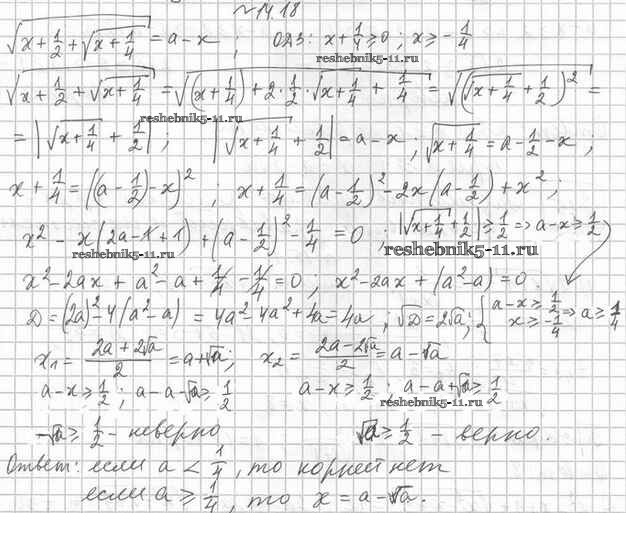 №14.18
√(x+1/2+√(x+1/4)) = a-x ; ОДЗ: x+1/4≥0; x≥-1/4
reshebnik5-11.ru
√(x+1/2+√(x+1/4)) = √((x+1/4)+2·1/2·√(x+1/4)+1/4) = √((√(x+1/4)+1/2)²) =
reshebnik5-11.ru
= |√(x+1/4)+1/2| ; |√(x+1/4)+1/2| = a-x ; √(x+1/4) = a-1/2-x ;
x+1/4 = ((a-1/2)-x)² ; x+1/4 = (a-1/2)²-2x(a-1/2)+x² ;
x²-x(2a-1+1)+(a-1/2)²-1/4=0 ; |√(x+1/4)+1/2|≥1/2 ⇒ a-x≥1/2
reshebnik5-11.ru
x²-2ax+a²-a+1/4-1/4=0, x²-2ax+(a²-a)=0.
D=(2a)²-4(a²-a) = 4a²-4a²+4a=4a ; √D=2√a ; { a-x≥1/2 x≥-1/4 ⇒ a≥1/4
x₁ = (2a+2√a)/2 = a+√a ; x₂ = (2a-2√a)/2 = a-√a
a-x≥1/2 ; a-a-√a≥1/2 a-x≥1/2 ; a-a+√a≥1/2
reshebnik5-11.ru
-√a≥1/2 - неверно √a≥1/2 - верно.
Ответ: если a<1/4, то корней нет
если a≥1/4, то x=a-√a.